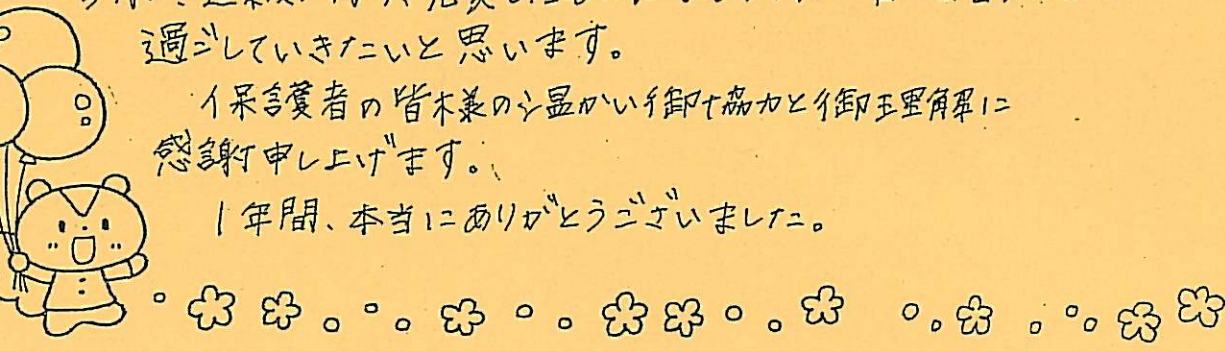 過ごしていきたいと思います。
保護者の皆様の温かい御協力と御理解に
感謝申し上げます。
1年間、本当にありがとうございました。